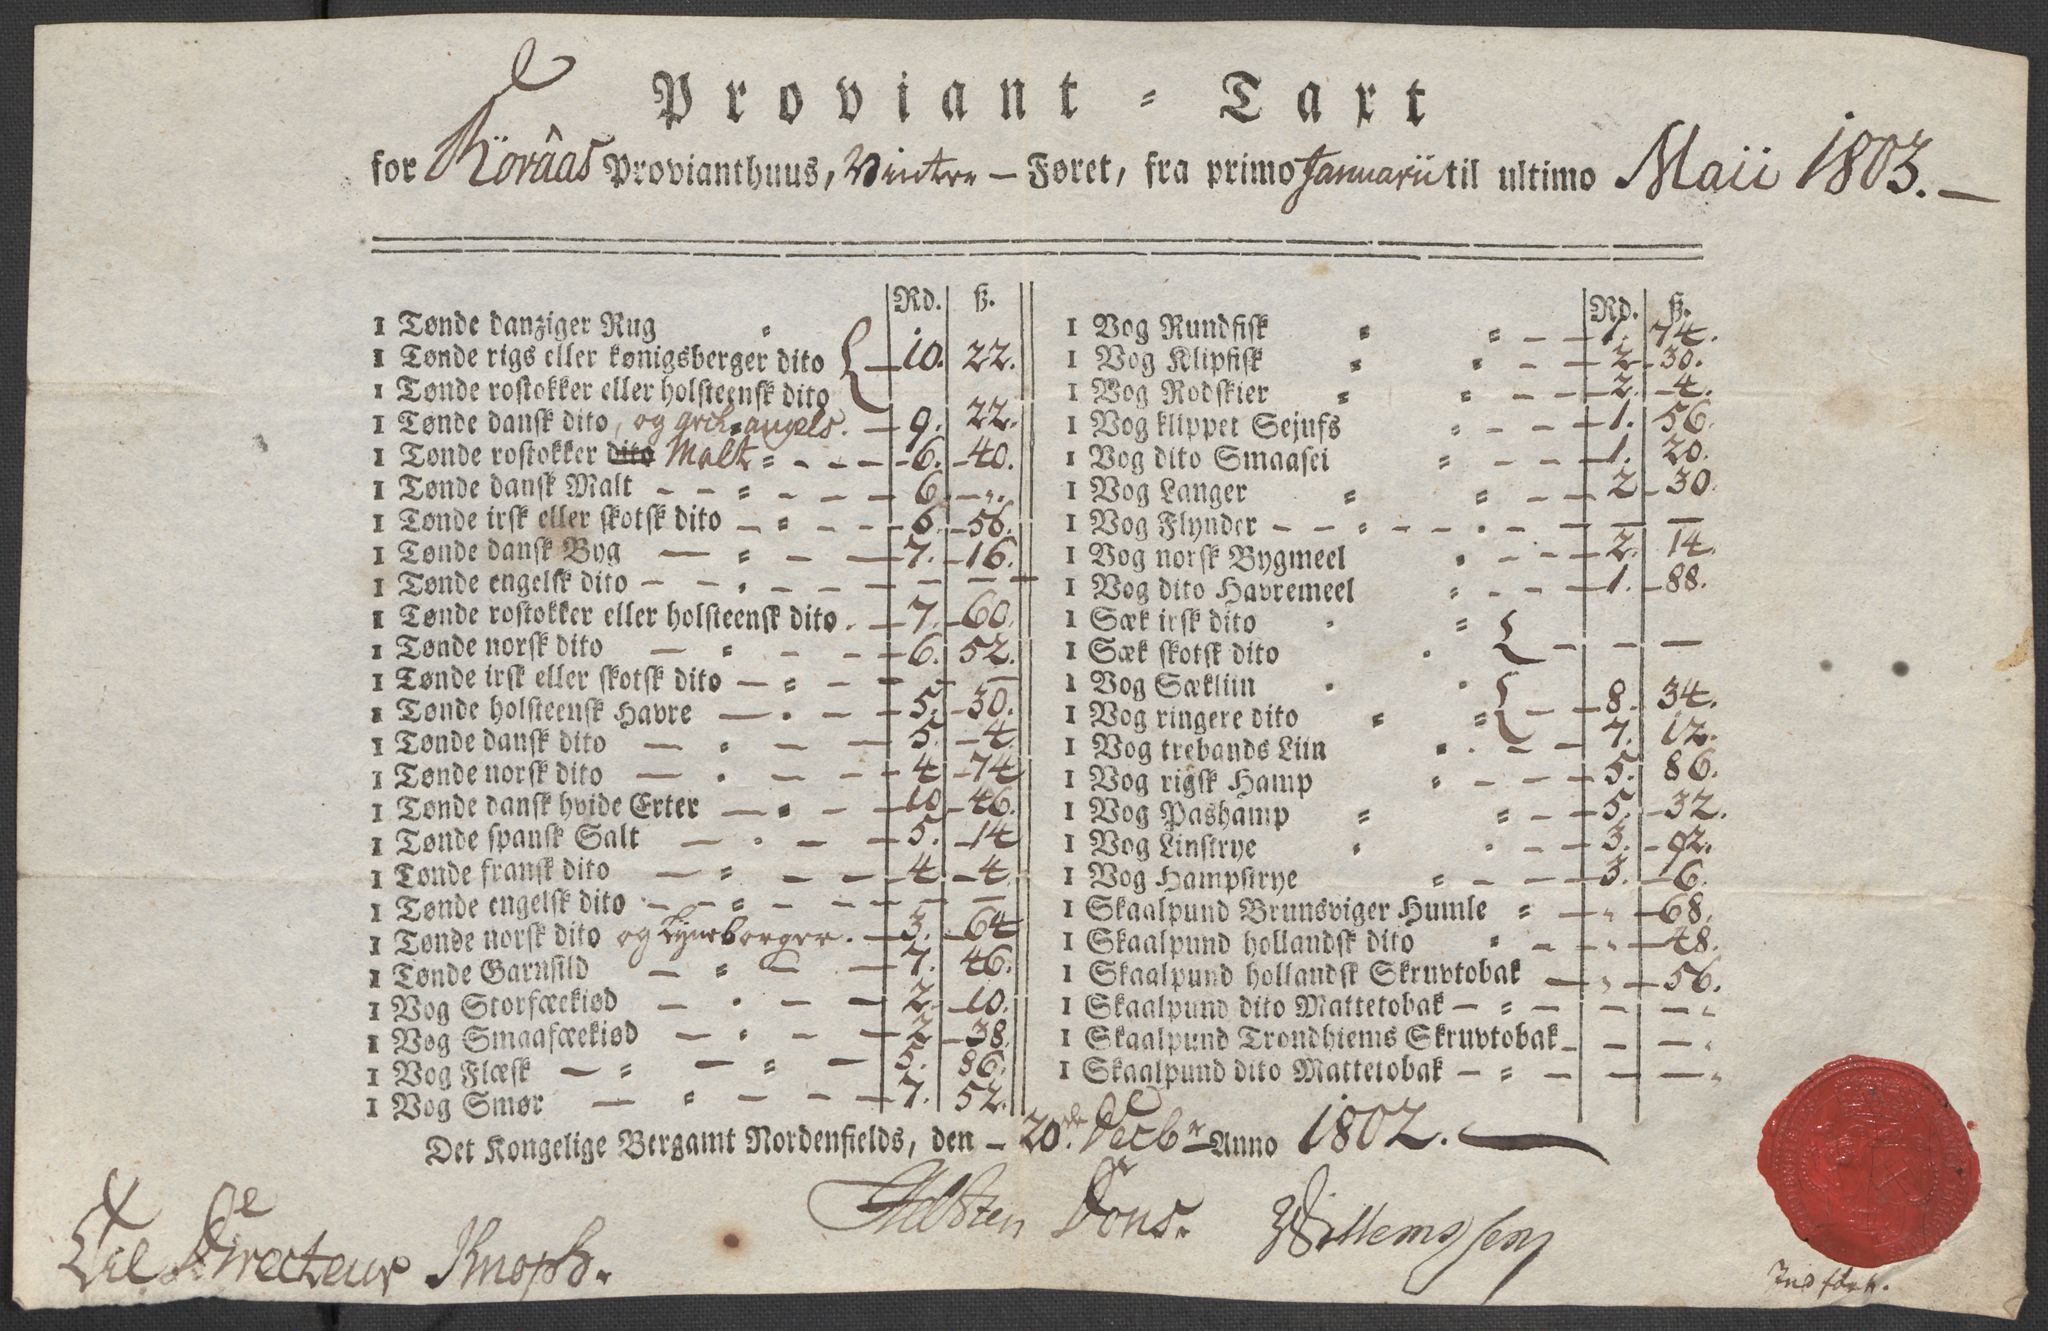 Proviant - Taxt
for Rörâas Provianthuus, Vinter - Føret, fra primo Januarii til ultimo Maii 1803.
Rd. ß.
1 Tønde danziger Rug
1 Tønde rigs eller kønigsberger dito 10. 22.
1 Tønde rostokker eller holsteensk dito
1 Tønde dansk dito, og archangels. 9. 22.
1 Tønde rostokker dito Malt 6. 40.
1 Tønde dansk Malt 6. „.
1 Tønde irsk eller skotsk dito 6. 56.
1 Tønde dansk Byg 7. 16.
1 Tønde engelsk dito — —
1 Tønde rostokker eller holsteensk dito 7. 60.
1 Tønde norsk dito 6. 52.
1 Tønde irsk eller skotsk dito — —
1 Tønde holsteensk Havre 5. 30.
1 Tønde dansk dito 5. 4.
1 Tønde norsk dito 4 74
1 Tønde dansk hvide Erter 10 46.
1 Tønde spansk Salt 5. 14
1 Tønde fransk dito 4 4.
1 Tønde engelsk dito — —
1 Tønde norsk dito og Lyneborger. 3. 64
1 Tønde Garnsild 7. 46.
1 Vog Storfæekiød 2. 10.
1 Vog Smaafæekiød 2 38.
1 Vog Flæsk 5. 86.
1 Vog Smør 7. 52.
Rd. ß.
1 Vog Rundfisk 1. 74.
1 Vog Klipfisk 2 30.
1 Vog Rodskier 2. 4.
1 Vog klippet Sejufs 1. 56.
1 Vog dito Smaasei 1. 20.
1 Vog Langer 2 30.
1 Vog Flynder — —
1 Vog norsk Bygmeel 2. 14.
1 Vog dito Havremeel 1. 88.
1 Sæk irsk dito
1 Sæk skotsk dito — —
1 Vog Sækliin 8. 34.
1 Vog ringere dito
1 Vog trebands Liin 7. 12.
1 Vog rigsk Hamp 5. 86.
1 Vog Pashamp 5. 32.
1 Vog Linstrye 3. 92.
1 Vog Hampstrye 3. 6.
1 Skaalpund Brunsviger Humle „ 68.
1 Skaalpund hollandsk dito „ 48.
1 Skaalpund hollandsk Skruvtobak „ 56.
1 Skaalpund dito Mattetobak — —
1 Skaalpund Trondhiems Skruvtobak — —
1 Skaalpund dito Mattetobak — —
Det Kongelige Bergamt Nordenfields, den 20de Decbr Anno 1802.
Dons. Willemssen
Til Directeur Knoph.